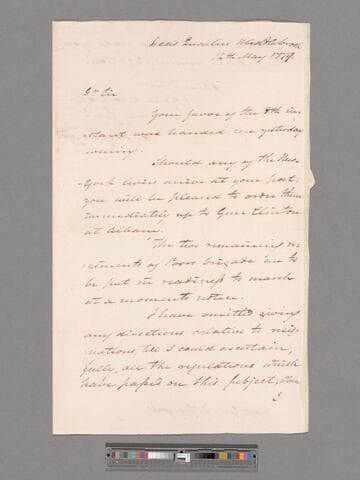 Head Quarters Middlebrook
12th May 1779.
Dr Sir
Your favor of the 8th in-
stant was handed me yesterday
evening.
Should any of the New-
York levies arrive at your post,
you will be pleased to order them
immediately up to Genl Clinton
at Albany.
The two remaining re-
giments of Poors brigade are to
be put in readiness to march
at a moments notice.
I have omitted giving
any directions relative to resig-
nations, till I could ascertain,
fully, all the regulations which
have passed on this subject;
I